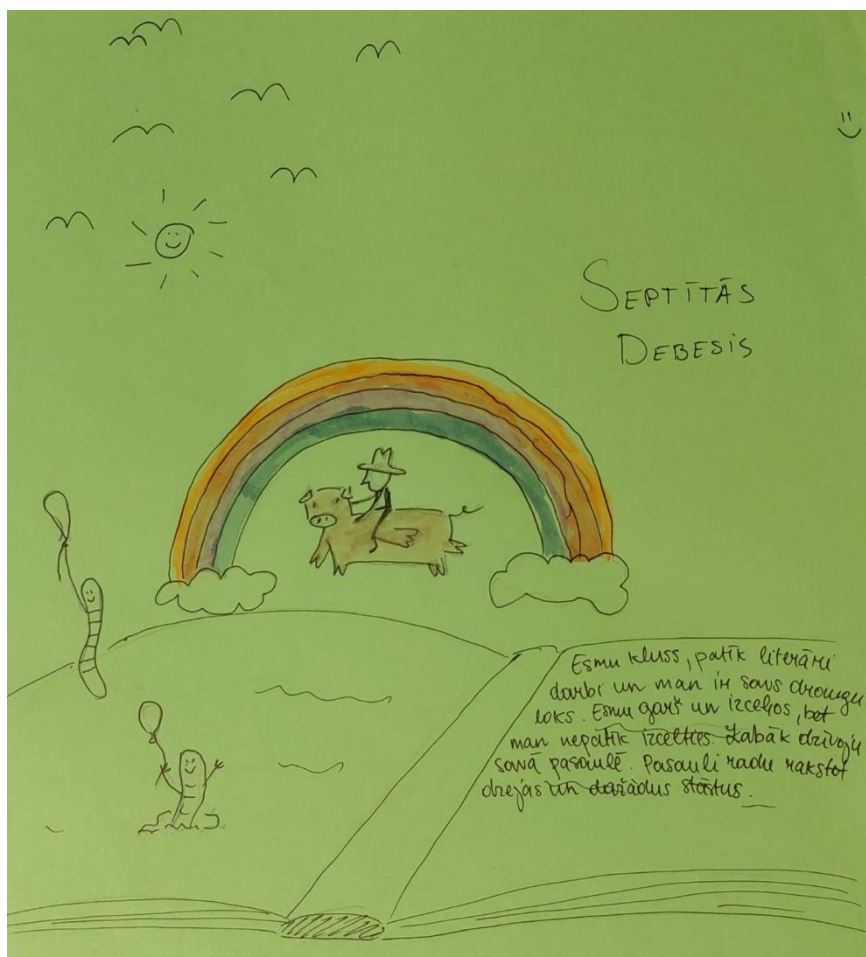 SEPTĪTĀS
DEBESIS
Esmu kluss, patīk literāri
darbi un man ir savs draugu
loks. Esmu garš un izceļos, bet
man nepatīk izcelties. Labāk dzīvoju
savā pasaulē. Pasauli radu rakstot
dzejas un dažādus stāstus.